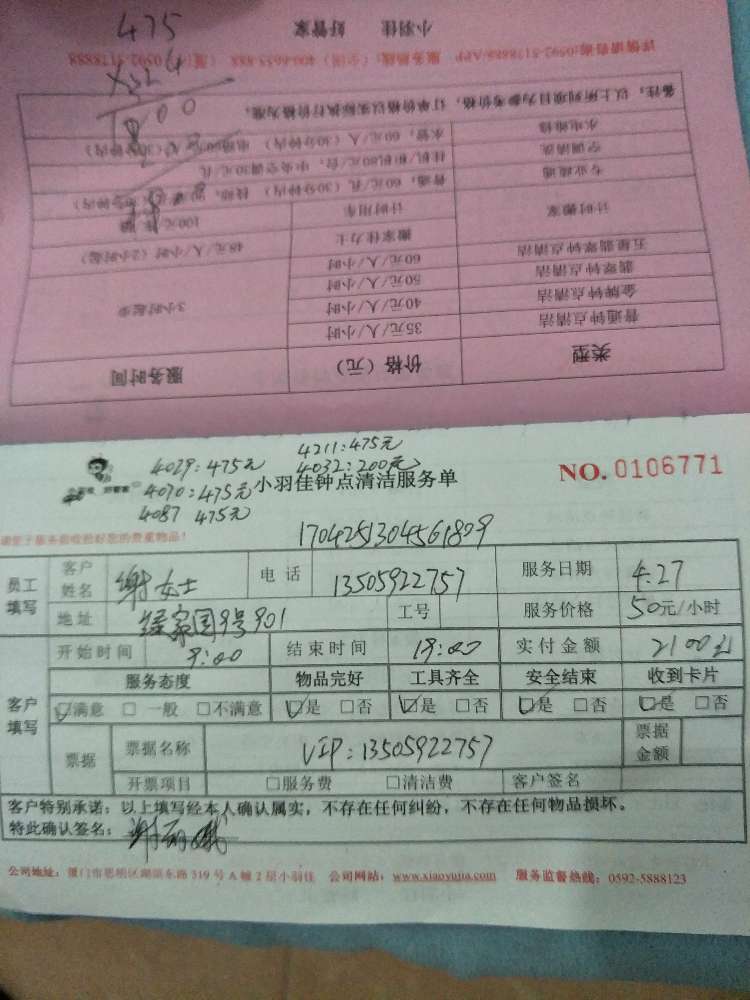 475
类型 价格（元） 服务时间
普通钟点清洁 35元/人/小时 3小时起步
金牌钟点清洁 40元/人/小时
翡翠钟点清洁 50元/人/小时
五星翡翠钟点清洁 60元/人/小时
搬家佳力士 48元/人/小时（2小时起）
计时搬家 计时用车 100元/
专业疏通 普通，60元/孔（30分钟内）
空调清洗 挂机/柜机80元/台，中央空调30元/孔
水电维修 水管，60元/人（30分钟内）
备注：以上所列项目为参考价格，订单价格以实际执行价格为准。
小羽佳 好管家
4211:475元
4029:475元 4032:200元
4070:475元 小羽佳钟点清洁服务单 NO.0106771
4087 475元
1704251304561809
员工填写 客户姓名 谢女士 电话 13505922757 服务日期 4.27
地址 9号901 工号 服务价格 50元/小时
客户填写 开始时间 9:00 结束时间 19:00 实付金额 2100元
服务态度 物品完好 工具齐全 安全结束 收到卡片
☑满意 □一般 □不满意 ☑是 □否 ☑是 □否 ☑是 □否 ☑是 □否
票据 票据名称 VIP:13505922757 票据金额
开票项目 □服务费 □清洁费 客户签名
客户特别承诺：以上填写经本人确认属实，不存在任何纠纷，不存在任何物品损坏。
特此确认签名：
公司地址：厦门市思明区湖滨东路319号A幢2层小羽佳 公司网站：www.xiaoyujia.com 服务监督热线：0592-5888123